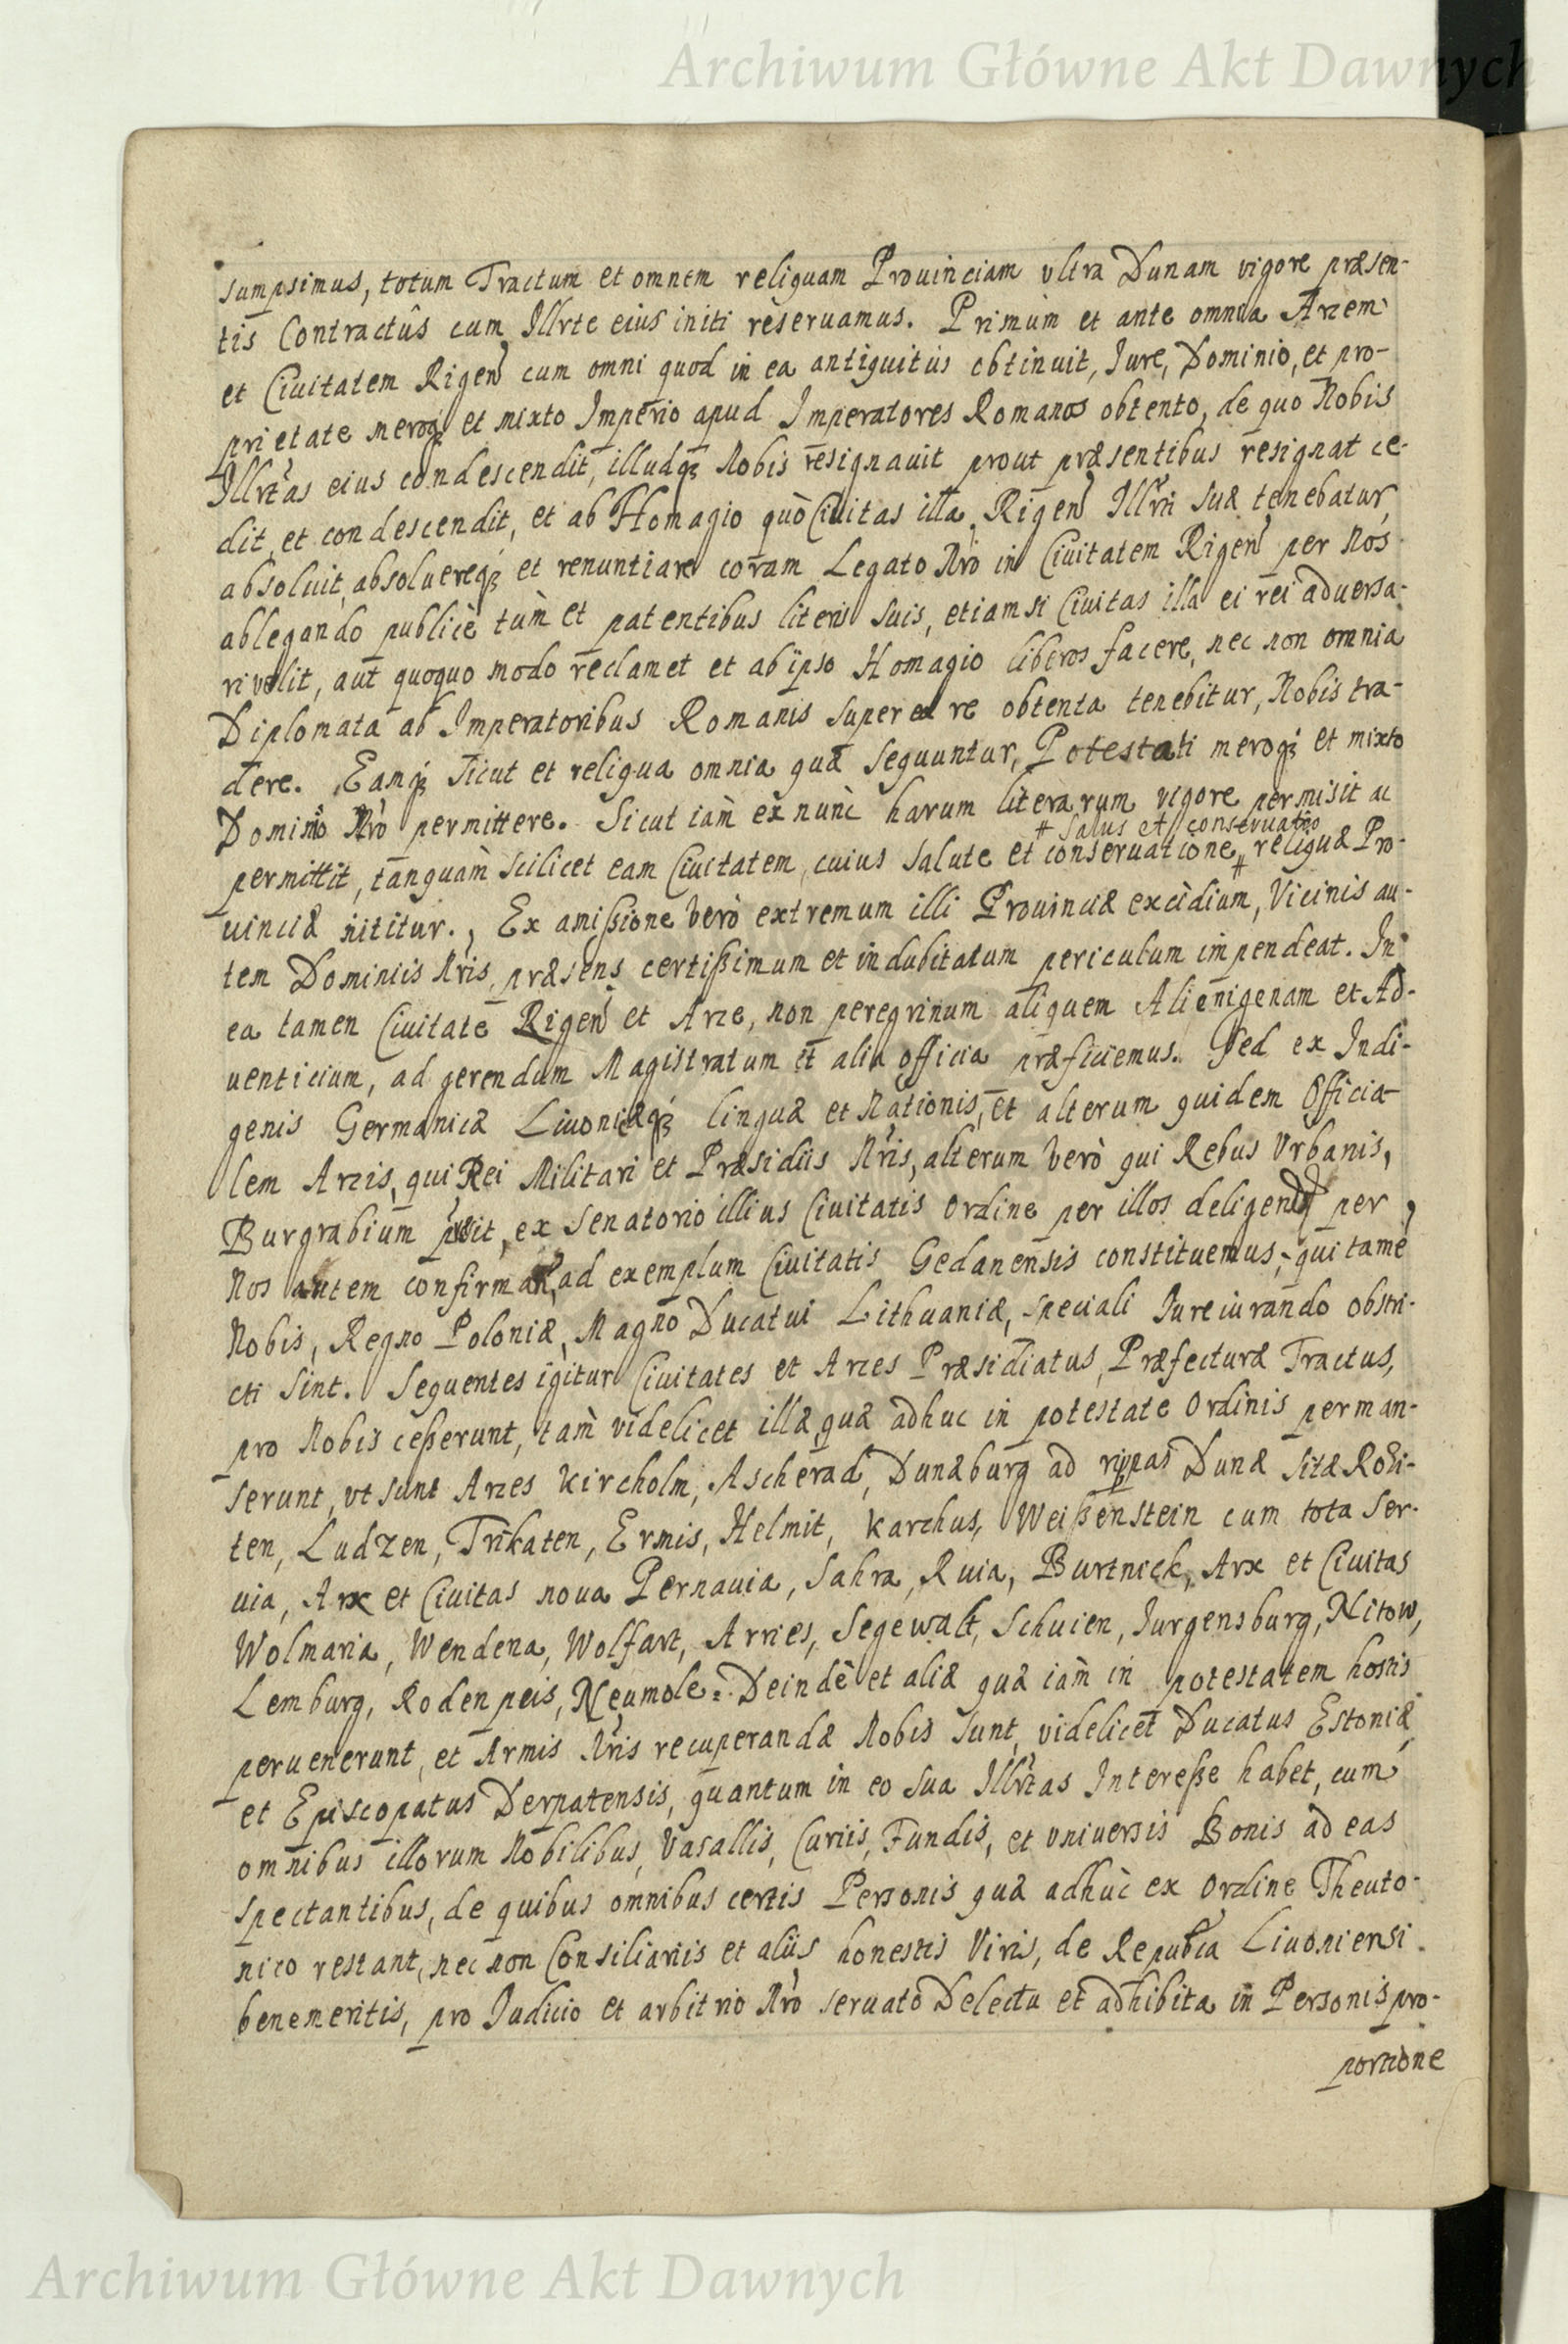 Archiwum Główne Akt Dawnych
sumpsimus, totum Tractum et omnem reliquam Prouinciam vltra Dunam vigore præsen-
tis Contractûs cum Illrte eius initi reseruamus. Primùm et ante omnia Arcem
et Ciuitatem Rigen cum omni quod in ea antiquitùs obtinuit, Iure, Dominio, et pro-
prietate meroq; et mixto Imperio apud Imperatores Romanos obtento, de quo Nobis
Illrtas eius condescendit, illudq; Nobis resignauit prout præsentibus resignat ce-
dit et condescendit, et ab Homagio quò Ciuitas illa Rigen Illrti suæ tenebatur,
absoluit, absoluereq; et renuntiare coram Legato Nro in Ciuitatem Rigen per Nos
ablegando publicè tùm et patentibus literis suis, etiamsi Ciuitas illa ei rei aduersa-
ri velit, aut quoquo modo reclamet et ab ipso Homagio liberos facere, nec non omnia
Diplomata ab Imperatoribus Romanis super ea re obtenta tenebitur, Nobis tra-
dere. Eamq; sicut et reliqua omnia quæ sequuntur, Potestati meroq; et mixto
Dominio Nro permittere. Sicut iam ex nunc harum literarum vigore permisit ac
# salus et conseruatio
permittit, tanquàm scilicet eam Ciuitatem, cuius salute et conseruatione # reliquæ Pro-
uinciæ nititur., Ex amißione verò extremum illi Prouinciæ excidium, Vicinis au-
tem Dominiis Nris præsens certißimum et indubitatum periculum impendeat. In
ea tamen Ciuitate Rigen et Arce, non peregrinum aliquem Alienigenam et Ad-
uenticium, ad gerendum Magistratum et alia officia præficiemus. Sed ex Indi-
genis Germanicæ Liuonicæq; linguæ et Nationis, et alterum quidem Officia-
lem Arcis, qui Rei Militari et Præsidiis Nris, alterum verò qui Rebus Vrbanis,
Burgrabium ex Senatorio illius Ciuitatis Ordine per illos deligend per
Nos autem confirman, ad exemplum Ciuitatis Gedanensis constituemus, qui tame
Nobis, Regno Poloniæ, Magno Ducatui Lithuaniæ, speciali Iureiurando obstri-
cti sint. Sequentes igitur Ciuitates et Arces Præsidiatus, Præfecturæ Tractus,
pro Nobis ceßerunt, tam videlicet illæ quæ adhuc in potestate Ordinis perman-
serunt, vt sunt Arces Kircholm, Ascherad, Dunæburg ad rippas Dunæ sitæ Rosi-
ten, Ludzen, Trikaten, Ermis, Helmit, Karchus, Weißenstein cum tota Ser-
uia, Arx et Ciuitas noua Pernauia, Sahra, Ruia, Burtnick, Arx et Ciuitas
Wolmaria, Wendena, Wolfart, Arries, Segewalt, Schuien, Iurgensburg, Nitow,
Lemburg, Rodenpeis, Neumole. Deindè et aliæ quæ iàm in potestatem hostis
peruenerunt, et Armis Nris recuperandæ Nobis sunt, videlicet Ducatus Estoniæ,
et Episcopatus Derpatensis, quantum in eo sua Illrtas Intereße habet, cum
omnibus illorum Nobilibus, Vasallis, Curiis, Fundis, et vniuersis Bonis ad eas
spectantibus, de quibus omnibus certis Personis quæ adhùc ex Ordine Theuto-
nico restant, nec non Consiliariis et aliis honestis Viris, de Republica Liuoniensi
benemeritis, pro Iudicio et arbitrio Nro seruato Delectu et adhibita in Personis pro-
portione
Archiwum Główne Akt Dawnych